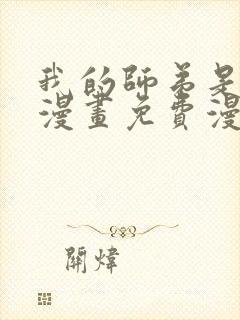 我的師弟是
漫畫免費漫
關煒